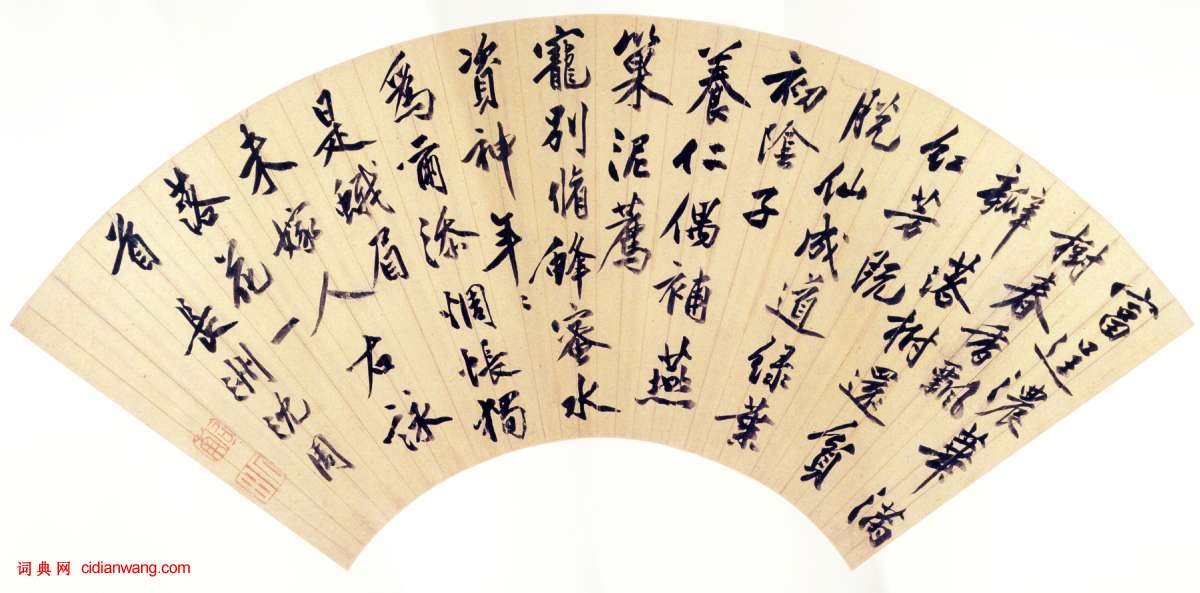 富逞濃華滿
樹春香飄
瓣落樹還貧
紅芳既
脫仙成道綠葉
初陰子
養仁偶補燕
巢泥薦
寵別脩蜂蜜水
資神年〻
爲爾添惆悵獨
是蛾眉 右詠
未嫁人
落花一
首 長洲沈周
词典网 cidianwang.com